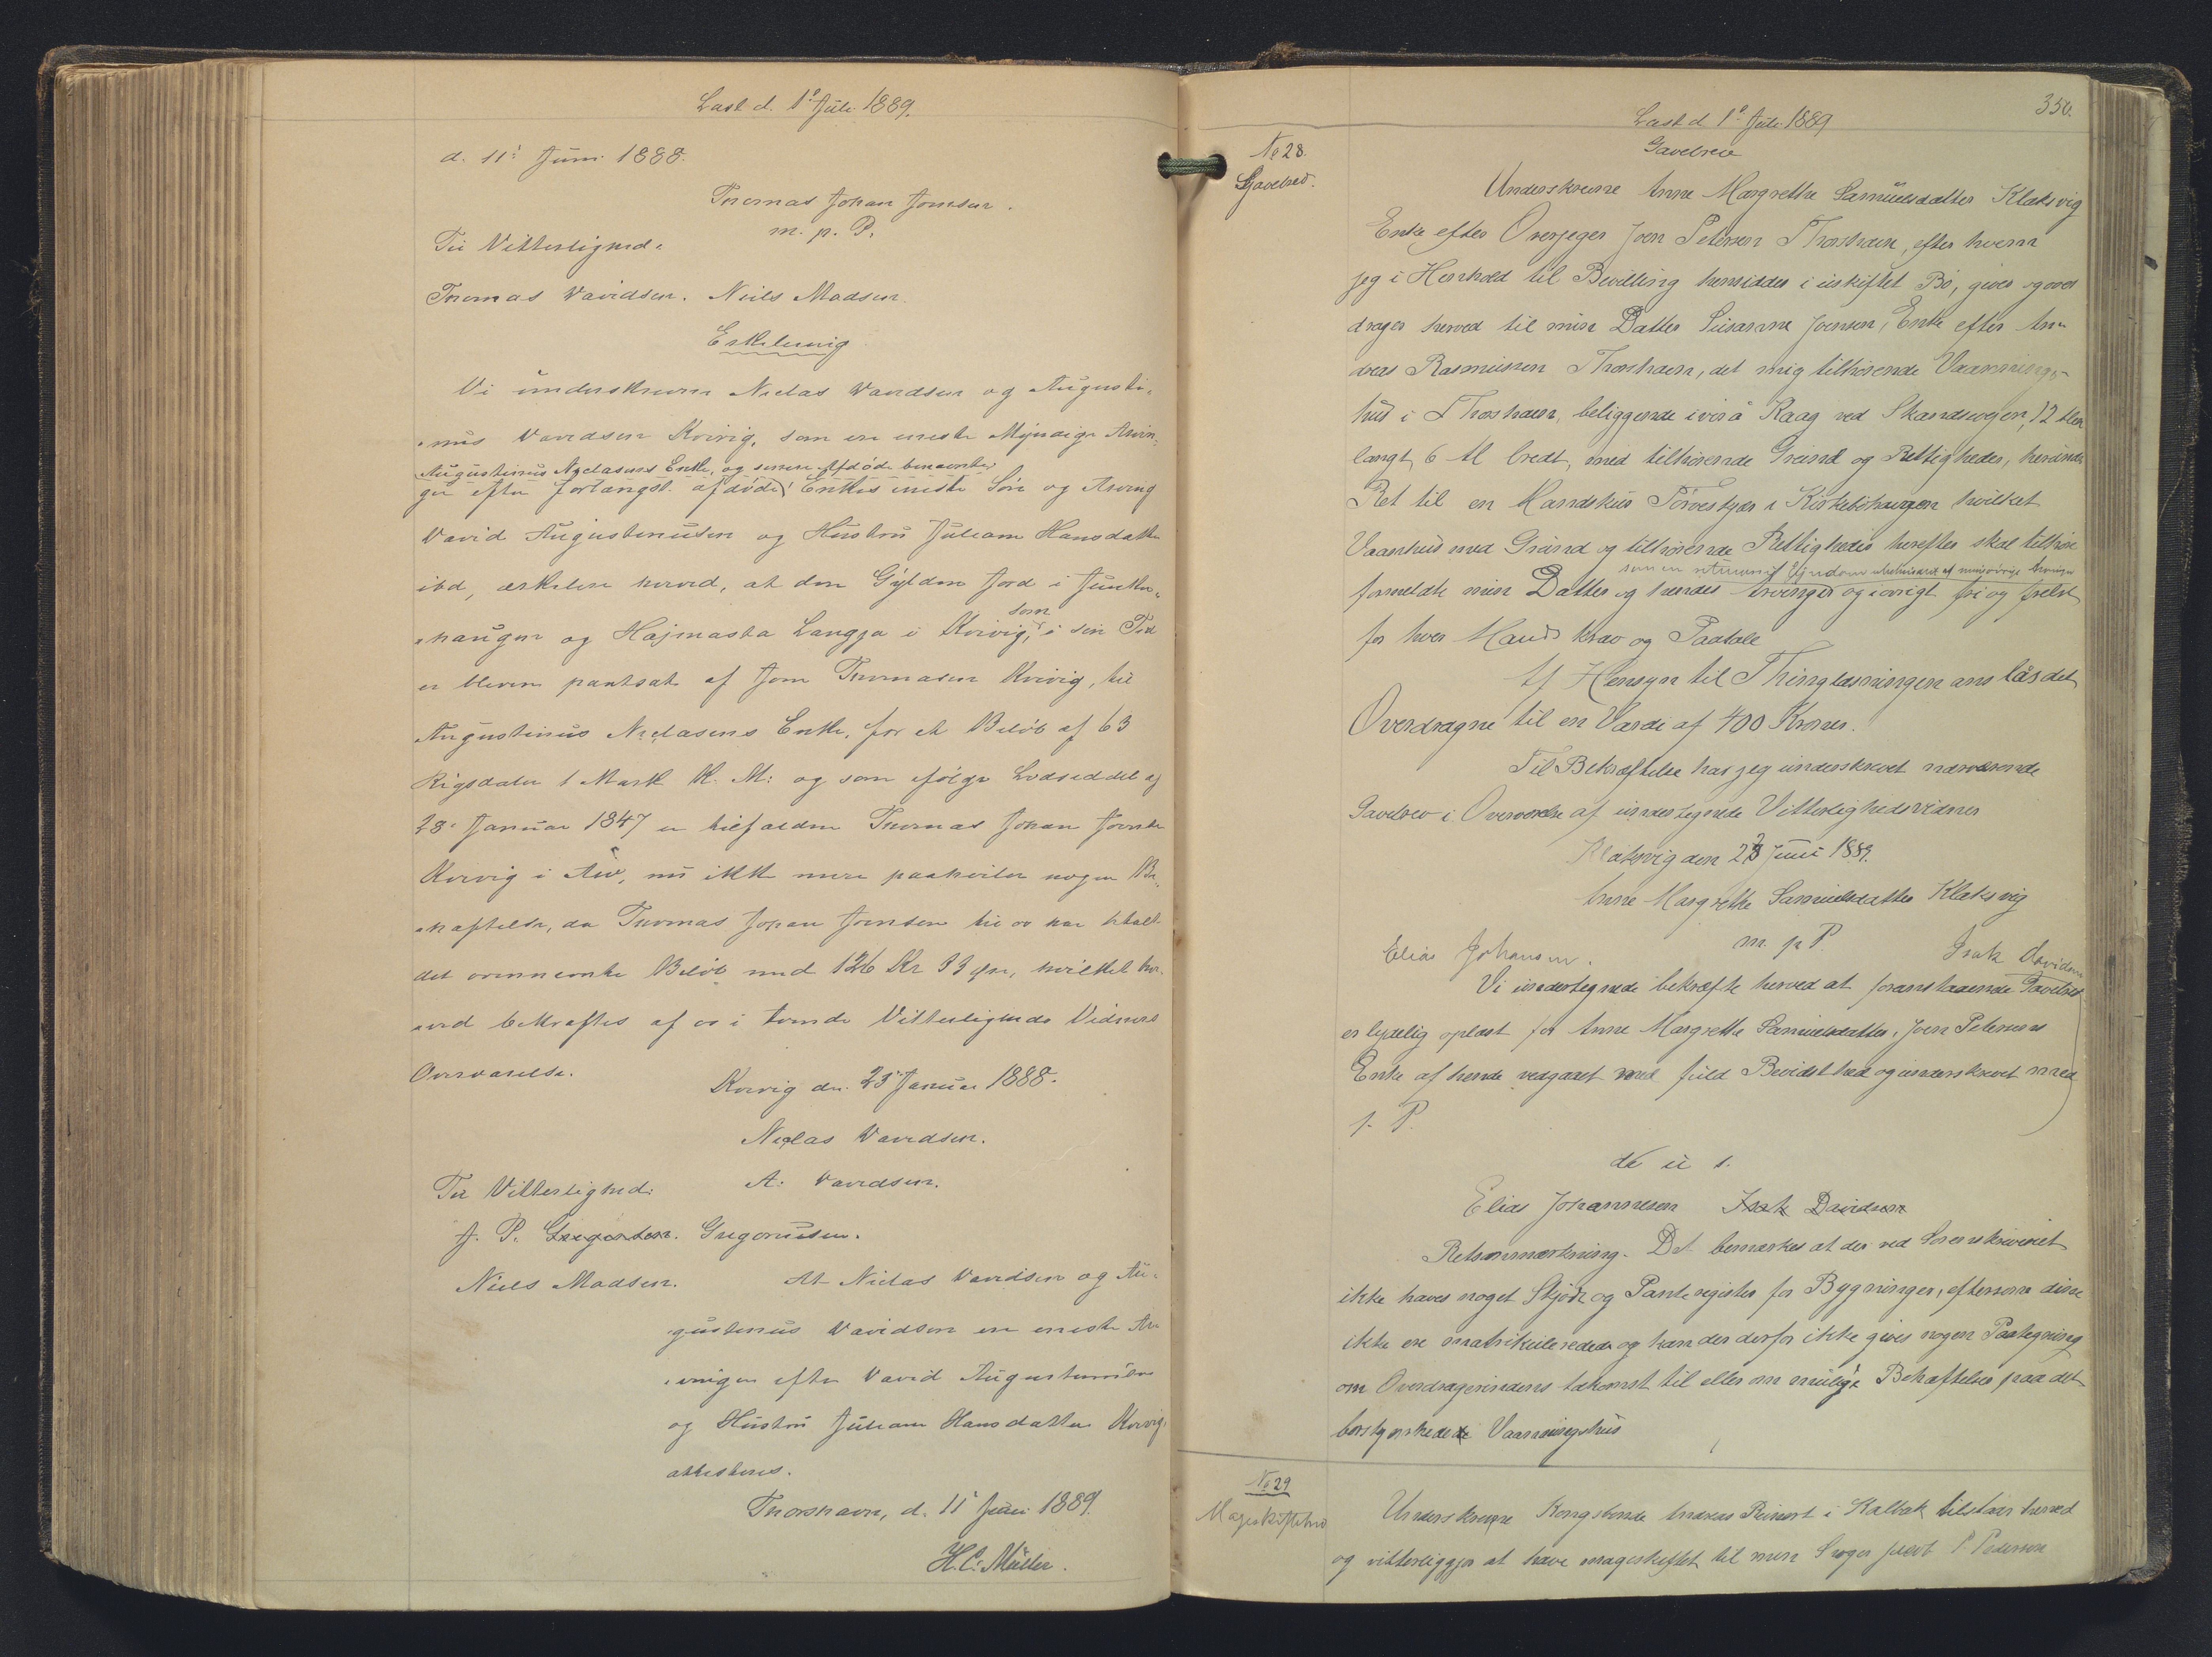 Læst d. 1ste Juli 1889.
d. 11te Juni 1888.
Thomas Johan Joensen.
m. p. P.
Til Vitterlighed:
Thomas Davidsen. Niels Madsen.
Erklæring
Vi underskrevne Niclas Davidsen og Augusti-
nus Davidsen Kvivig, som ere eneste Myndige Arvin-
Augustinus Niclasens Enke, og senere Afdøde benævnte
ger efter forlængst afdøde Enkes eneste Søn og Arving
David Augustinusen og Hustru Juliane Hansdatter
ibd, erklære herved, at den Gylden Jord i
haugen og Højmasta Langja i Kvivig, som i sin Tid
er bleven pantsat af Joen Thomasen Kvivig, til
Augustinus Niclasens Enke, for et Beløb af 63
Rigsdaler 1 Mark R. M: og som ifølge Lodseddel af
28. Januar 1847 er tilfalden Thomas Johan Joensen
Kvivig i Arv, nu ikke mere paahviler nogen Be-
hæftelse, da Thomas Johan Joensen til os har betalt
det ovennævnte Beløb med 126 Kr 33 Øre, hvilket her-
ved bekræftes af os i tvende Vitterligheds Vidners
Overværelse.
Kvivig den 25 Januar 1888.
Niclas Davidsen.
Til Vitterlighed: A. Davidsen.
J. P. Gregersen. Gregoriusen.
Niels Madsen. At Niclas Davidsen og Au-
gustinus Davidsen ere eneste Ar-
vinger efter David Augustinusen
og Hustru Juliane Hansdatter Kvivig
attesteres.
Thorshavn, d. 11 Juni 1889.
H.C. Müller.
350.
Læst d 1ste Juli 1889
No 28.
Gavebrev.
Gavebrev
Underskrevne Anne Margrethe Samuelsdatter Klaksvig
Enke efter Overjeger Joen Petersen Thorshavn, efter hvem
jeg i Henhold til Bevilling hensidder i uskiftet Bo, giver og over
drager herved til min Datter Susanne Joensen, Enke efter An-
dreas Rasmussen Thorshavn, det mig tilhørende Vaanings-
hus i Thorshavn, beliggende iviså Raag ved Skandsevejen, 12 Alen
langt, 6 Al bredt, med tilhørende Grund og Rettigheder, herunder
Ret til en Mandshus Tørveskjær i Kirkebøhaugen hvilket
Vaanhus med Grund og tilhørende Rettigheder herefter skal tilhøre
som en Ejendom af mine øvrige Arvinger
formeldte min Datter og hendes Arvinger og iøvrigt fri og frelst
for hver Mands Krav og Paatale
Af Hensyn til Thinglæsningen anslåes det
Overdragne til en Værdi af 400 Kroner.
Til Bekræftelse har jeg underskrevet nærværende
Gavebrev i Overværelse af undertegnede Vitterlighedsvidner
Klaksvig den 28 Juni 1889.
Anne Margrethe Samuelsdatter Klaksvig
m. p P.
Elias Johansen. Isak Davidsen
Vi undertegnede bekræfte herved at foranstaaende Gavebrev
er lydelig oplæst for Anne Margrethe Samuelsdatter, Joen Petersens
Enke af hende vedgaaet med fuld Bevidsthed og underskrevet med
f. P.
d u s.
Elias Johannesen Isak Davidsen
Retsanmærkning. Det bemærkes at der ved Sorenskriveriet
ikke haves noget Skjøde og Panteregister for Bygninger, eftersom disse
ikke ere matrikulerede og kan der derfor ikke gives nogen Paategning
om Overdragerindens Adkomst til eller om mulige Behæftelser paa det
bortskjænkede Vaaningshus
No 29
Mageskiftebrev
Underskrevne Kongsbonde Andreas Reinert i Kalbak tilstaar herved
og vitterliggjør at have mageskiftet til min Svoger Jacob P Pedersen